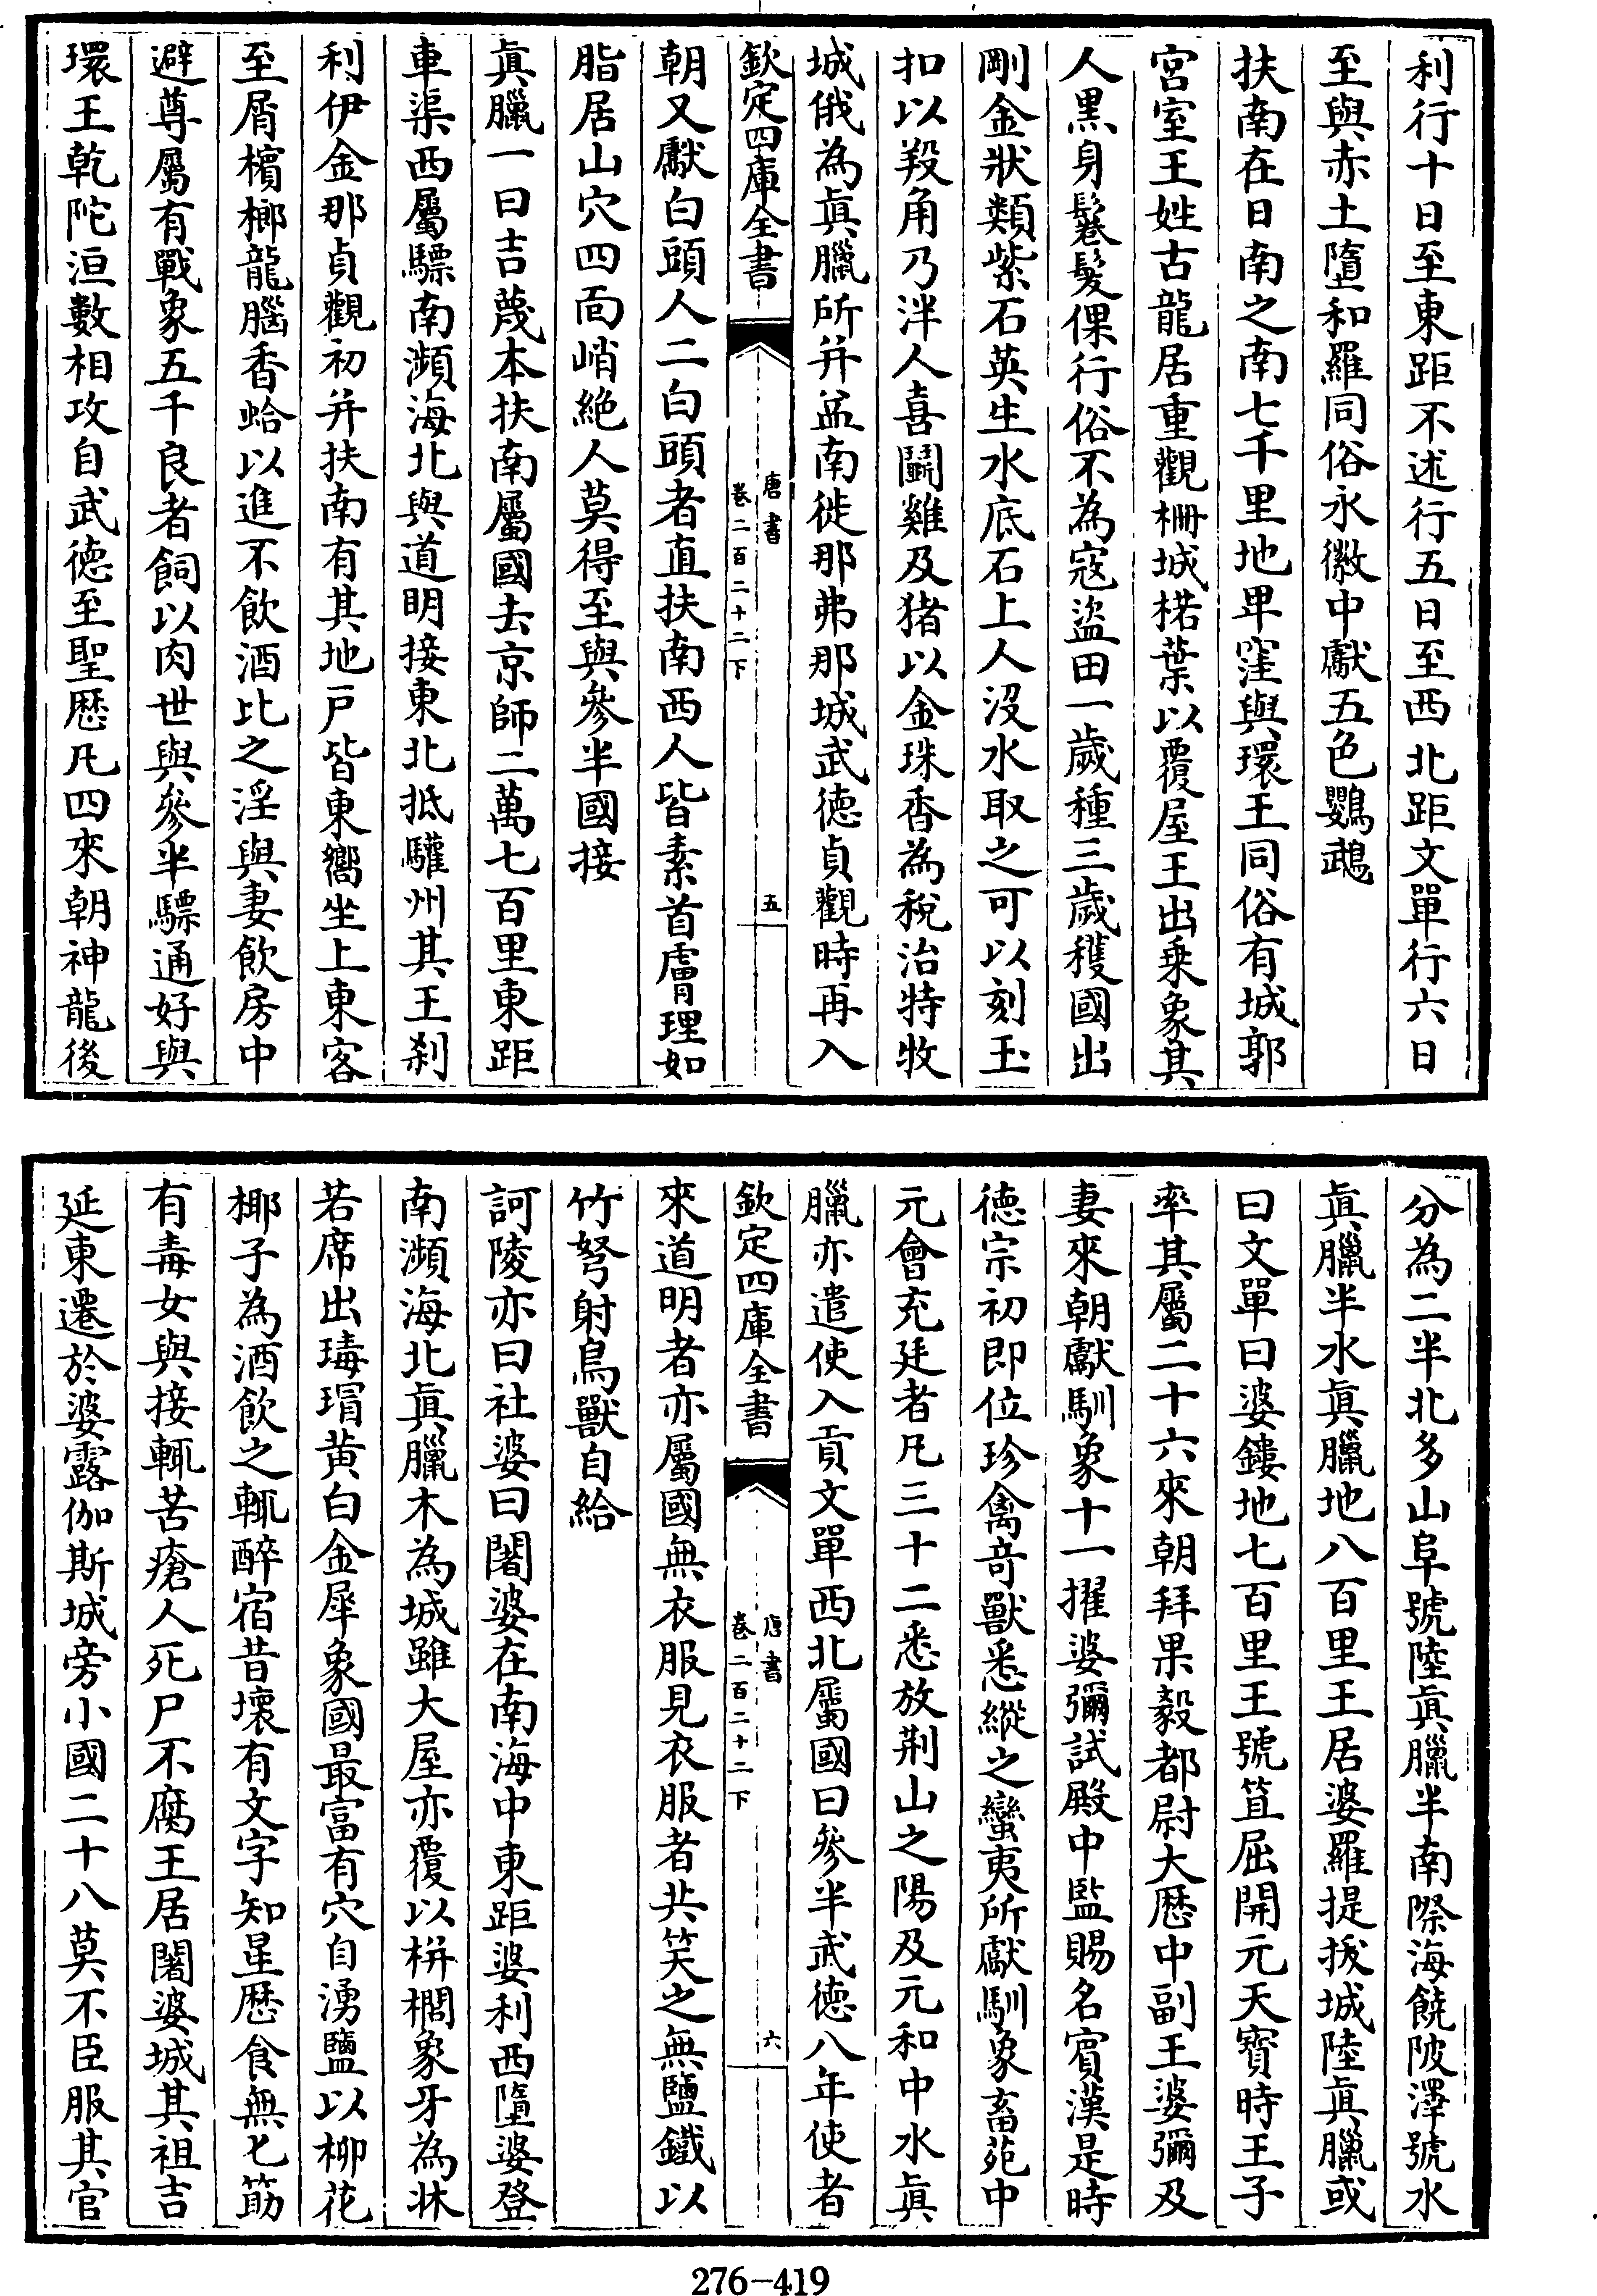 利行十日至東距不述行五日至西北距文單行六日
至與赤土墮和羅同俗永徽中獻五色鸚鵡
扶南在日南之南七千里地卑窪與環王同俗有城郭
宮室王姓古龍居重觀柵城楉葉以覆屋王出乗象其
人黒身鬈髮倮行俗不為寇盜田一歲種三歲穫國出
剛金狀類紫石英生水底石上人没水取之可以刻玉
扣以羖角乃泮人喜鬭雞及猪以金珠香為稅治特牧
城俄為眞臘所并益南徙那弗那城武德貞觀時再入
欽定四庫全書
唐書
卷二百二十二下
五
朝又獻白頭人二白頭者直扶南西人皆素首膚理如
脂居山穴四面峭絶人莫得至與參半國接
眞臘一曰吉蔑本扶南屬國去京師二萬七百里東距
車渠西屬驃南瀕海北與道明接東北抵驩州其王刹
利伊金那貞觀初并扶南有其地戸皆東嚮坐上東客
至屑檳榔龍腦香蛤以進不飲酒比之淫與妻飲房中
避尊屬有戰象五千良者飼以肉世與參半驃通好與
環王乾陀洹數相攻自武德至聖厯凡四來朝神龍後
分為二半北多山阜號陸眞臘半南際海饒陂澤號水
眞臘半水眞臘地八百里王居婆羅提拔城陸眞臘或
曰文單曰婆鏤地七百里王號笪屈開元天寶時王子
率其屬二十六來朝拜果毅都尉大厯中副王婆彌及
妻來朝獻馴象十一擢婆彌試殿中監賜名賓漢是時
德宗初即位珍禽竒獸悉縱之蠻夷所獻馴象畜苑中
元會充廷者凡三十二悉放荆山之陽及元和中水眞
臘亦遣使入貢文單西北屬國曰參半武德八年使者
欽定四庫全書
唐書
卷二百二十二下
六
來道明者亦屬國無衣服見衣服者共笑之無鹽鐵以
竹弩射鳥獸自給
訶陵亦曰社婆曰闍婆在南海中東距婆利西墮婆登
南瀕海北眞臘木為城雖大屋亦覆以栟櫚象牙為牀
若席出瑇瑁黄白金犀象國最富有穴自湧鹽以柳花
椰子為酒飲之輒醉宿昔壞有文字知星厯食無匕筯
有毒女與接輒苦瘡人死尸不腐王居闍婆城其祖吉
延東遷於婆露伽斯城旁小國二十八莫不臣服其官
276-419